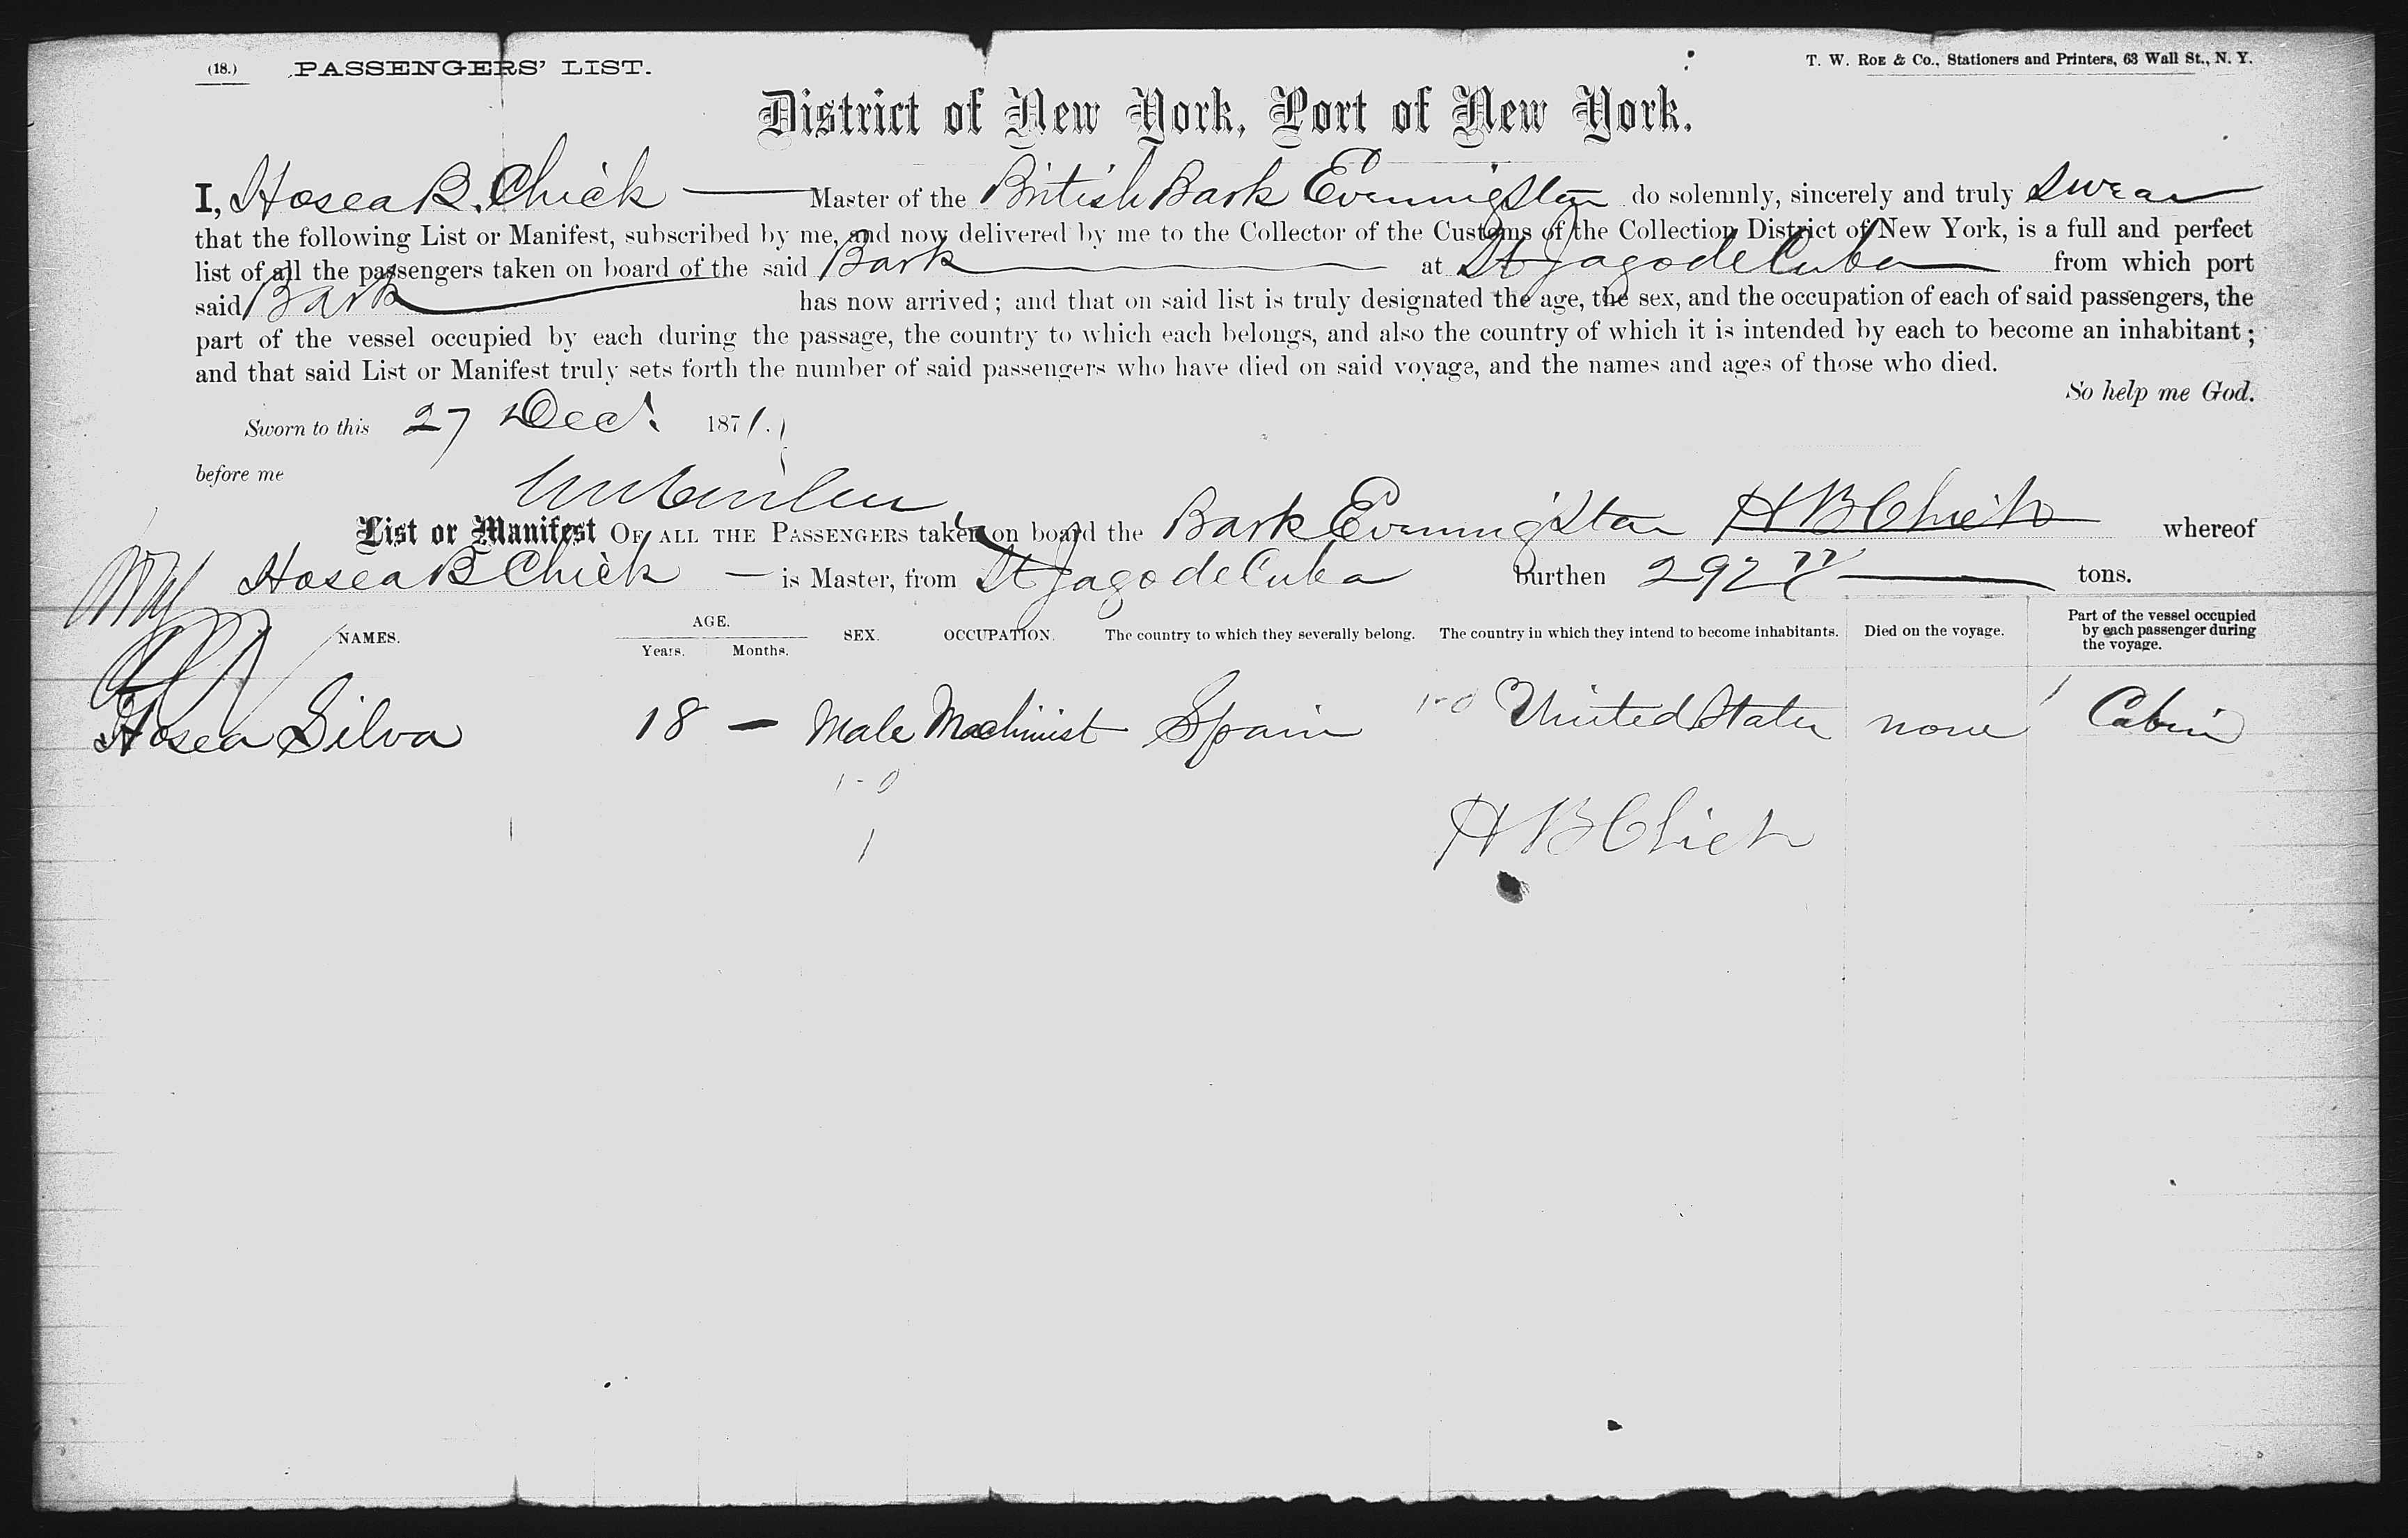 (18.) PASSENGERS' LIST. T. W. ROE & Co., Stationers and Printers, 63 Wall St., N. Y.
District of New York, Port of New York.
I, Hosea B. Chick Master of the British Bark Evening Star do solemnly, sincerely and truly swear
that the following List or Manifest, subscribed by me, and now delivered by me to the Collector of the Customs of the Collection District of New York, is a full and perfect
list of all the passengers taken on board of the said Bark at St Jago de Cuba from which port
said Bark has now arrived; and that on said list is truly designated the age, the sex, and the occupation of each of said passengers, the
part of the vessel occupied by each during the passage, the country to which each belongs, and also the country of which it is intended by each to become an inhabitant;
and that said List or Manifest truly sets forth the number of said passengers who have died on said voyage, and the names and ages of those who died.
So help me God.
Sworn to this 27 Dec. 1871.
before me
List or Manifest OF ALL THE PASSENGERS taken on board the Bark Evening Star H B Chick whereof
Hosea B Chick — is Master, from St Jago de Cuba burthen 292 tons.
NAMES. AGE. Years. Months. SEX. OCCUPATION. The country to which they severally belong. The country in which they intend to become inhabitants. Died on the voyage. Part of the vessel occupied by each passenger during the voyage.
Hosea Silva 18 — Male Machinist Spain 1-0 United States none 1 Cabin
1-0
1
H B Chick